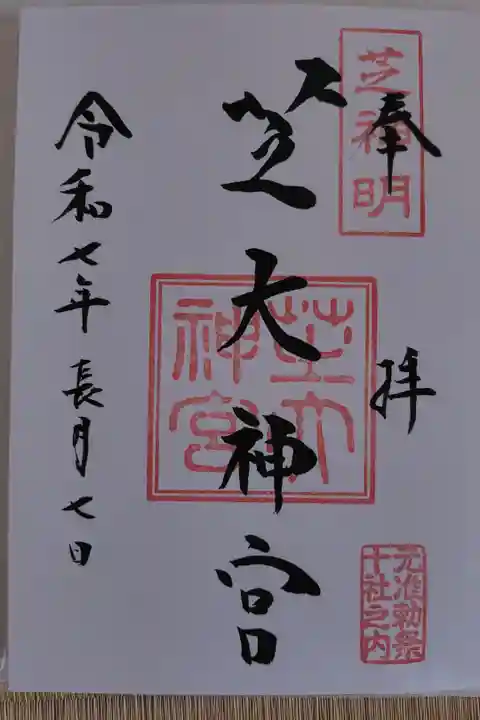 奉拝
芝神明
芝大神宮
芝大
神宮
元准勅祭
十社之内
令和七年長月七日